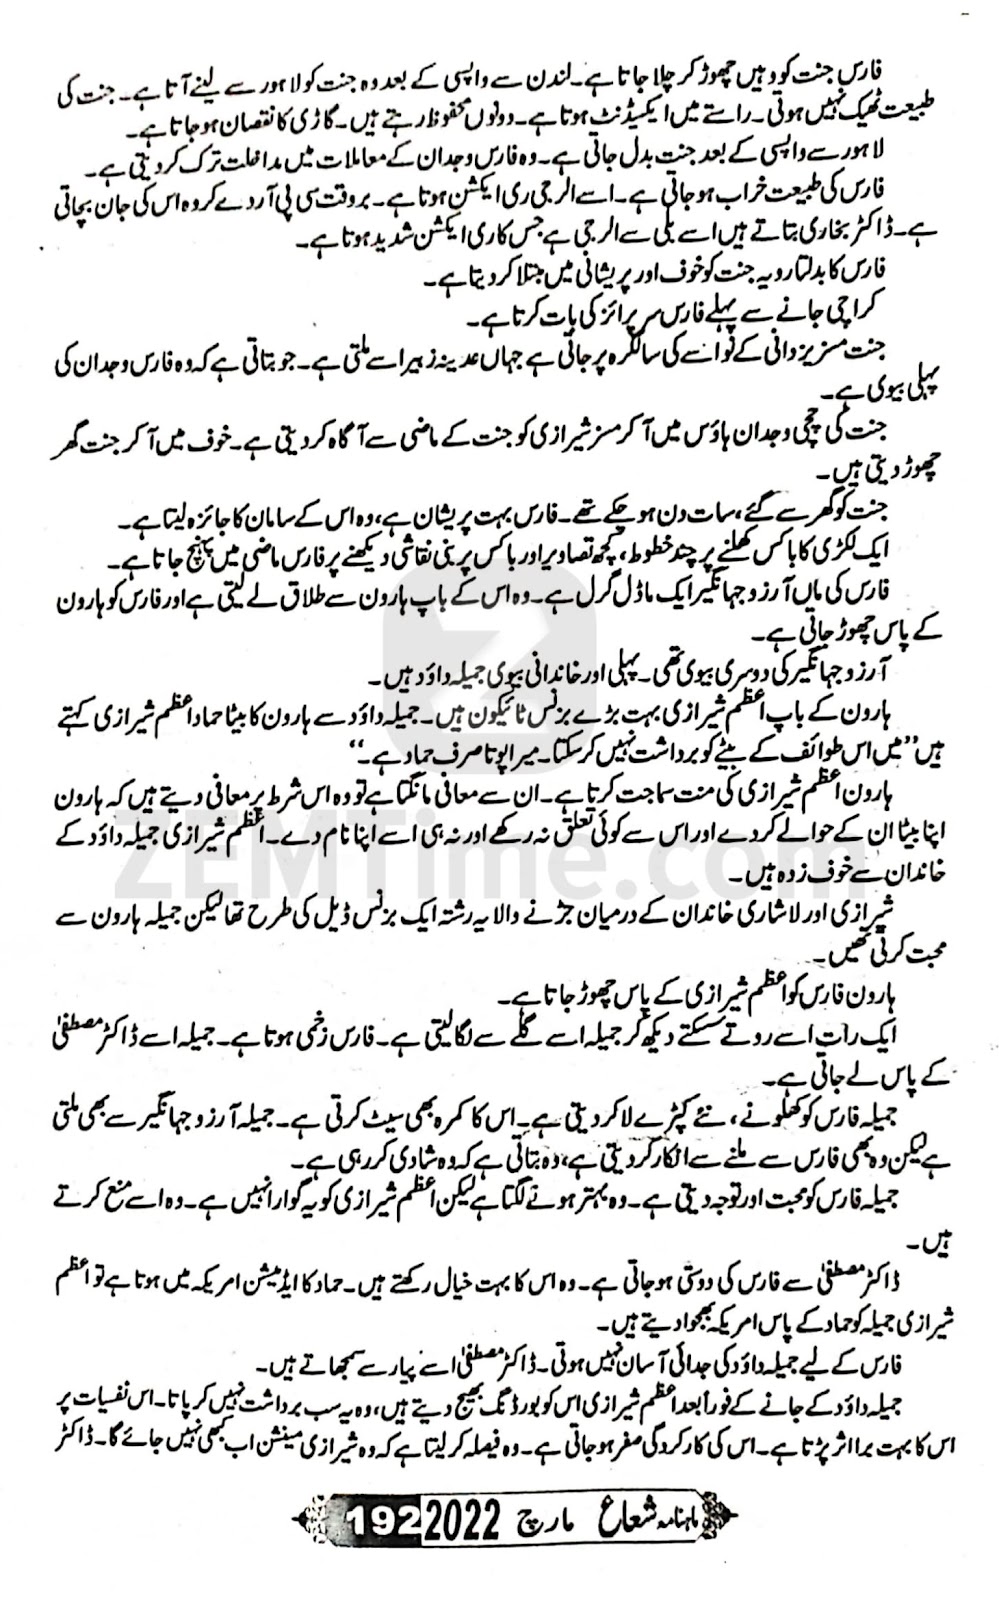 فارس جنت کو وہیں چھوڑ کر چلا جاتا ہے۔ لندن سے واپسی کے بعد وہ جنت کو لاہور سے لینے آتا ہے۔ جنت کی
طبیعت ٹھیک نہیں ہوتی۔ راستے میں ایکسیڈنٹ ہوتا ہے۔ دونوں محفوظ رہتے ہیں۔ گاڑی کا نقصان ہو جاتا ہے۔
لاہور سے واپسی کے بعد جنت بدل جاتی ہے۔ وہ فارس وجدان کے معاملات میں مداخلت ترک کر دیتی ہے۔
فارس کی طبیعت خراب ہو جاتی ہے۔ اسے الرجی ری ایکشن ہوتا ہے۔ بروقت سی پی آر دے کر وہ اس کی جان بچاتی
ہے۔ ڈاکٹر بخاری بتاتے ہیں اسے بلی سے الرجی ہے جس کا ری ایکشن شدید ہوتا ہے۔
فارس کا بدلتا رویہ جنت کو خوف اور پریشانی میں مبتلا کر دیتا ہے۔
کراچی جانے سے پہلے فارس سرپرائز کی بات کرتا ہے۔
جنت مسز یزدانی کے نواسے کی سالگرہ پر جاتی ہے جہاں عدینہ زبیر اسے ملتی ہے۔ جو بتاتی ہے کہ وہ فارس وجدان کی
پہلی بیوی ہے۔
جنت کی چچی وجدان ہاؤس میں آ کر مسز شیرازی کو جنت کے ماضی سے آگاہ کر دیتی ہے۔ خوف میں آ کر جنت گھر
چھوڑ دیتی ہیں۔
جنت کو گھر سے گئے، سات دن ہو چکے تھے۔ فارس بہت پریشان ہے، وہ اس کے سامان کا جائزہ لیتا ہے۔
ایک لکڑی کا باکس کھلنے پر چند خطوط، کچھ تصاویر اور باکس پر بنی نقاشی دیکھنے پر فارس ماضی میں پہنچ جاتا ہے۔
فارس کی ماں آرزو جہانگیر ایک ماڈل گرل ہے۔ وہ اس کے باپ ہارون سے طلاق لے لیتی ہے اور فارس کو ہارون
کے پاس چھوڑ جاتی ہے۔
آرزو جہانگیر کی دوسری بیوی تھی۔ پہلی اور خاندانی بیوی جمیلہ داؤد ہیں۔
ہارون کے باپ اعظم شیرازی بہت بڑے بزنس ٹائیکون ہیں۔ جمیلہ داؤد سے ہارون کا بیٹا حماد اعظم شیرازی کہتے
ہیں ’’میں اس طوائف کے بیٹے کو برداشت نہیں کر سکتا۔ میرا پوتا صرف حماد ہے۔‘‘
ہارون اعظم شیرازی کی منت سماجت کرتا ہے۔ ان سے معافی مانگتا ہے تو وہ اس شرط پر معافی دیتے ہیں کہ ہارون
اپنا بیٹا ان کے حوالے کر دے اور اس سے کوئی تعلق نہ رکھے اور نہ ہی اسے اپنا نام دے۔ اعظم شیرازی جمیلہ داؤد کے
خاندان سے خوف زدہ ہیں۔
شیرازی اور لاشاری خاندان کے درمیان جڑنے والا یہ رشتہ ایک بزنس ڈیل کی طرح تھا لیکن جمیلہ ہارون سے
محبت کرتی تھیں۔
ہارون فارس کو اعظم شیرازی کے پاس چھوڑ جاتا ہے۔
ایک رات اسے روتے سسکتے دیکھ کر جمیلہ اسے گلے سے لگا لیتی ہے۔ فارس زخمی ہوتا ہے۔ جمیلہ اسے ڈاکٹر مصطفیٰ
کے پاس لے جاتی ہے۔
جمیلہ فارس کو کھلونے، نئے کپڑے لا کر دیتی ہے۔ اس کا کمرہ بھی سیٹ کرتی ہے۔ جمیلہ آرزو جہانگیر سے بھی ملتی
ہے لیکن وہ بھی فارس سے ملنے سے انکار کر دیتی ہے، وہ بتاتی ہے کہ وہ شادی کر رہی ہے۔
جمیلہ فارس کو محبت اور توجہ دیتی ہے۔ وہ بہتر ہونے لگتا ہے لیکن اعظم شیرازی کو یہ گوارا نہیں ہے۔ وہ اسے منع کرتے
ہیں۔
ڈاکٹر مصطفیٰ سے فارس کی دوستی ہو جاتی ہے۔ وہ اس کا بہت خیال رکھتے ہیں۔ حماد کا ایڈمیشن امریکہ میں ہوتا ہے تو اعظم
شیرازی جمیلہ کو حماد کے پاس امریکہ بھجوا دیتے ہیں۔
فارس کے لیے جمیلہ داؤد کی جدائی آسان نہیں ہوتی۔ ڈاکٹر مصطفیٰ اسے پیار سے سمجھاتے ہیں۔
جمیلہ داؤد کے جانے کے فوراً بعد اعظم شیرازی اس کو بورڈنگ بھیج دیتے ہیں، وہ یہ سب برداشت نہیں کر پاتا۔ اس نفسیات پر
اس کا بہت برا اثر پڑتا ہے۔ اس کی کارکردگی صفر ہو جاتی ہے۔ وہ فیصلہ کر لیتا ہے کہ وہ شیرازی مینشن اب کبھی نہیں جائے گا۔ ڈاکٹر
ماہنامہ شعاع مارچ 2022 192
ZEMTime.com